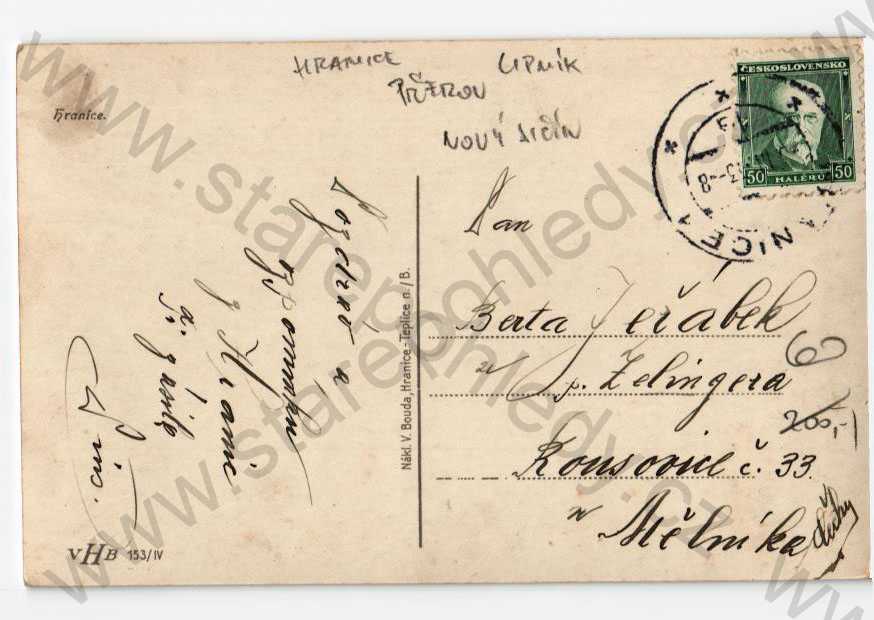 HRANICE
LIPNÍK
PŘEROV
NOVÝ JIČÍN
Hranice.
ČESKOSLOVENSKO
50 HALÉŘŮ 50
ANICE
Pan
Berta Jeřábek
u p. Zelingera
Kousovice č. 33.
u Mělníka
60
200,-
Pozdrav a
vzpomínku
z Hranic
Nákl. V. Bouda, Hranice-Teplice n./B.
VHB 153/IV
www.starepohledy.cz